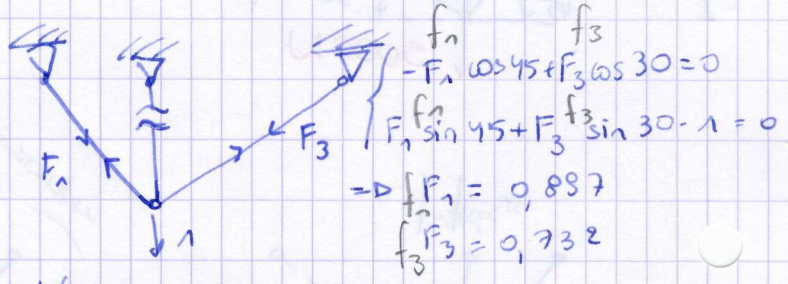 f1 f3
-F1 cos 45 + F3 cos 30 = 0
f1 f3
F1 sin 45 + F3 sin 30 - 1 = 0
F1
F3
1
=> f1 F1 = 0,897
f3 F3 = 0,732